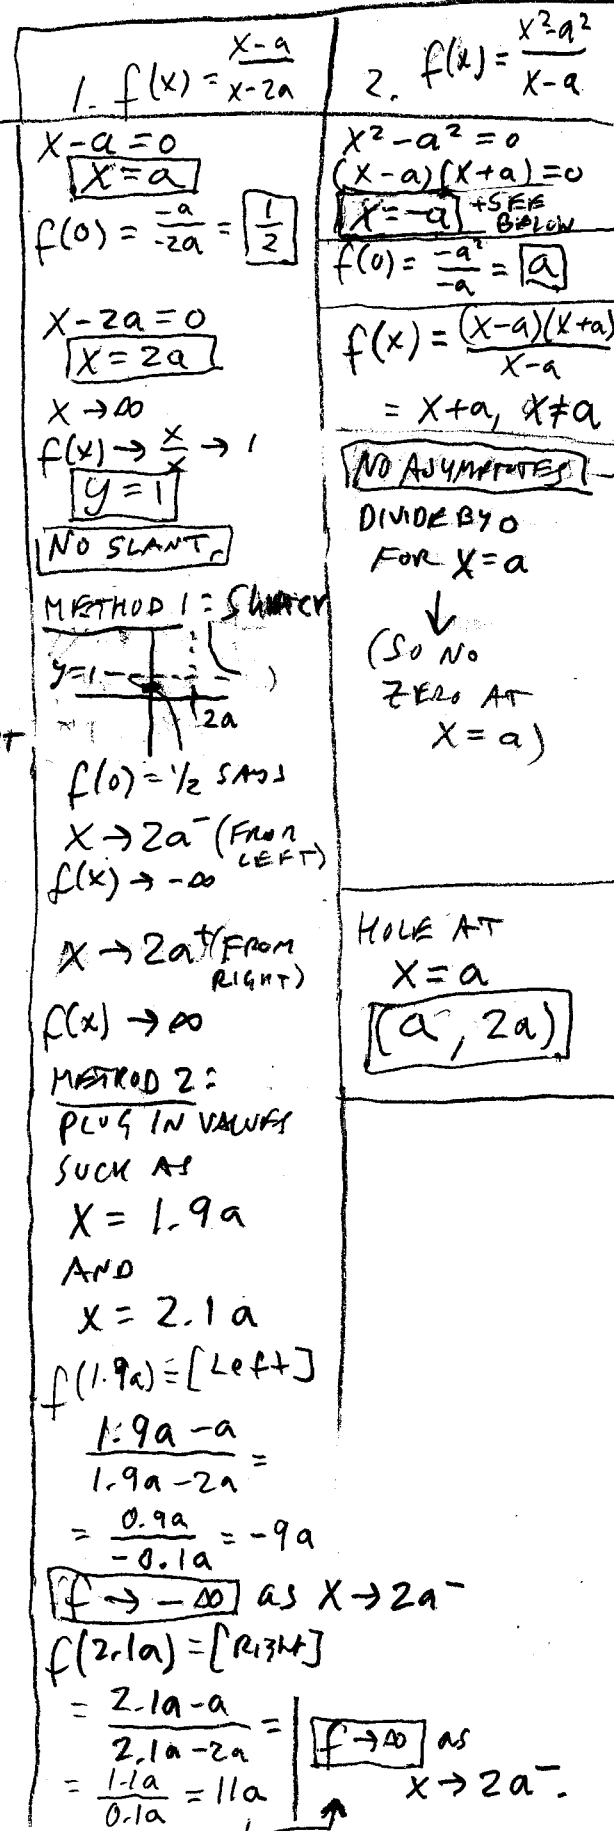 1. f(x) = x-a / x-2a
x-a=0
x=a
f(0) = -a/-2a = 1/2
x-2a=0
x=2a
x→∞
f(x)→ x/x → 1
y=1
NO SLANT.
METHOD 1:
y=1
2a
f(0)=1/2 SAYS
x→2a⁻ (FROM LEFT)
f(x)→-∞
x→2a⁺ (FROM RIGHT)
f(x)→∞
METHOD 2:
PLUG IN VALUES
SUCH AS
x=1.9a
AND
x=2.1a
f(1.9a)=[Left]
1.9a-a / 1.9a-2a =
= 0.9a / -0.1a = -9a
f→-∞ as x→2a⁻
f(2.1a)=[Right]
= 2.1a-a / 2.1a-2a =
= 1.1a / 0.1a = 11a
f→∞ as
x→2a⁻.
2. f(x) = x²-a² / x-a
x²-a²=0
(x-a)(x+a)=0
x=-a +SEE BELOW
f(0) = -a²/-a = a
f(x) = (x-a)(x+a) / x-a
= x+a, x≠a
NO ASYMPTOTES
DIVIDE BY 0
FOR x=a
↓
(SO NO
ZERO AT
x=a)
HOLE AT
x=a
(a, 2a)